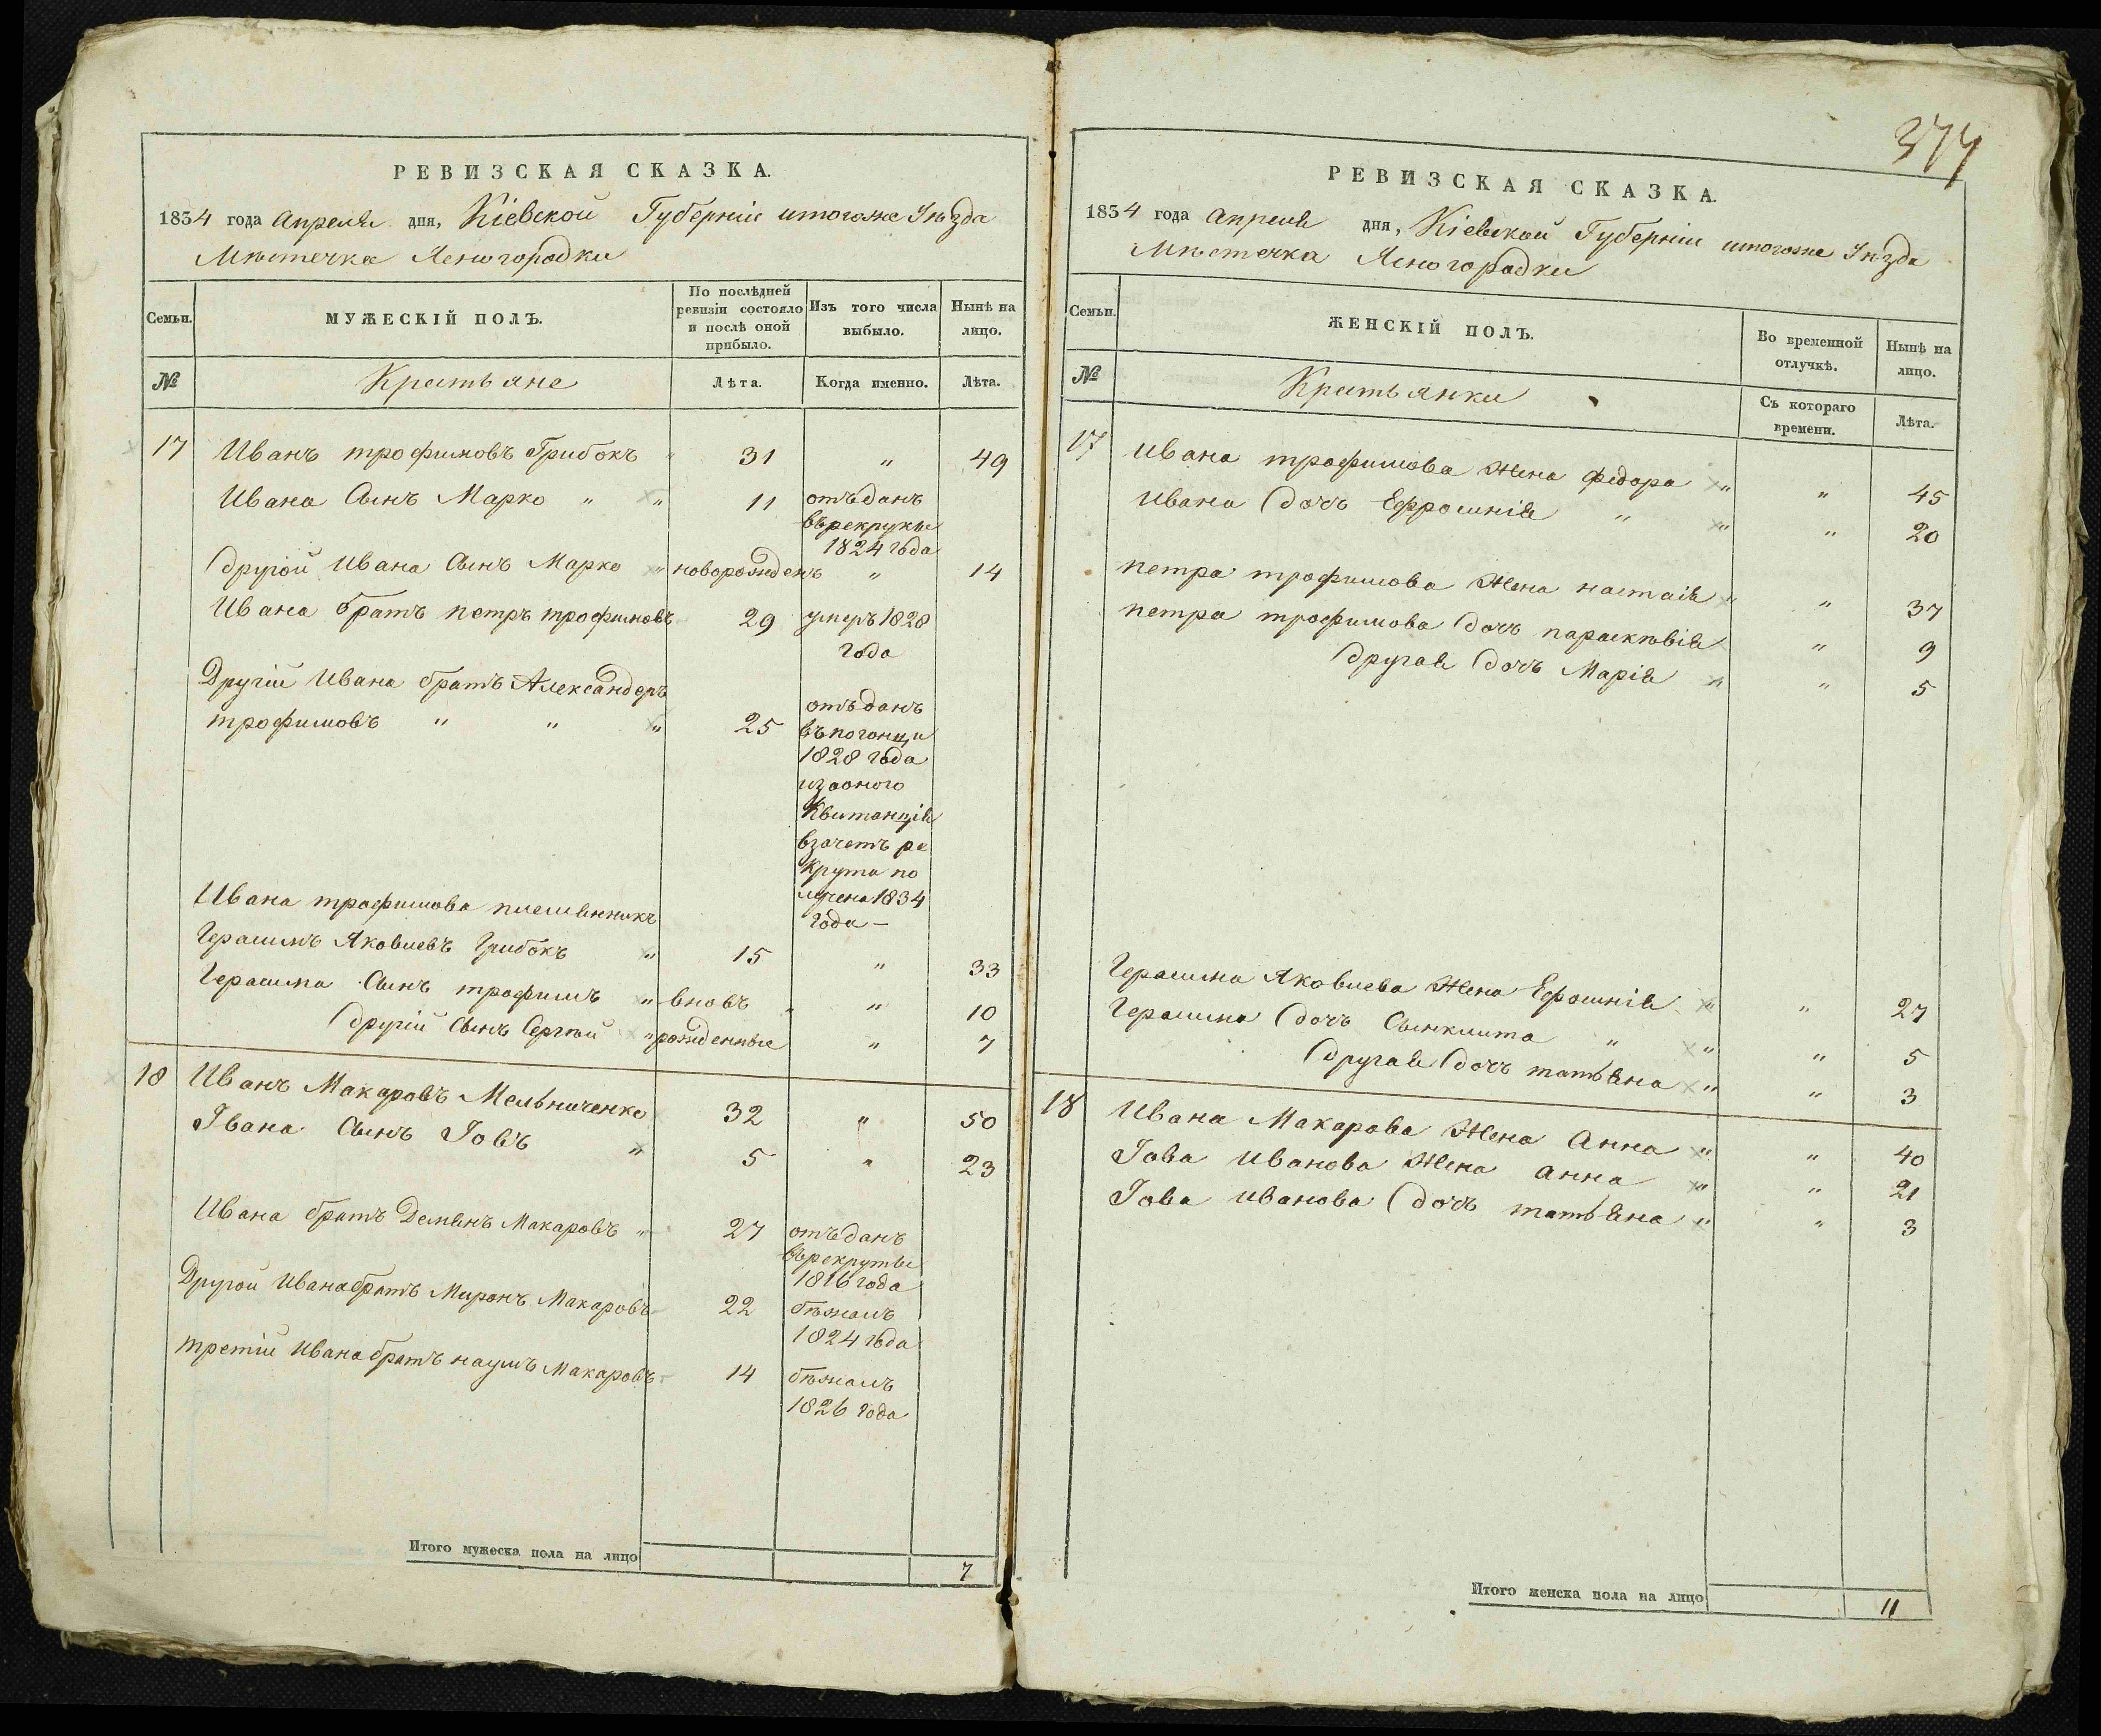 РЕВИЗСКАЯ СКАЗКА.
1834 года Апреля дня, Кіевской Губерніи итогоже Уѣзда
Мѣстечка Ясногородки
Семьи.
МУЖЕСКІЙ ПОЛЪ.
По послѣдней ревизіи состояло и послѣ оной прибыло.
Изъ того числа выбыло.
Нынѣ на лицо.
№
Крестьяне
Лѣта.
Когда именно.
Лѣта.
17 Иванъ трофимовъ Грибокъ " 31 " 49
Ивана Сынъ Марко " " 11 отъданъ
върекруты
1824 года
другой Ивана Сынъ Марко " новорожденъ " 14
Ивана братъ петръ трофимовъ 29 умеръ 1828
года
Другій Ивана братъ Александеръ
трофимовъ " " " 25 отъданъ
въпогонци
1828 года
изаоного
Квитанція
взачетъ ре
Крута по
лучена 1834
года –
Ивана трофимова племянникъ
Герасимъ Яковлевъ Грибокъ " 15 " 33
Герасима Сынъ трофимъ " вновь " " 10
другій Сынъ Сергѣй " рожденные " 7
18 Иванъ Макаровъ Мельниченко 32 " 50
Івана Сынъ Іовъ " 5 " 23
Ивана братъ Демянъ Макаровъ " 27 отъданъ
върекруты
1816 года
Другой Ивана братъ Миронъ Макаровъ 22 бѣжалъ
1824 года
третій Ивана братъ наумъ Макаровъ 14 бѣжалъ
1826 года
Итого мужеска пола на лицо 7
377
РЕВИЗСКАЯ СКАЗКА.
1834 года Апреля дня, Кіевской Губерніи итогоже Уѣзда
Мѣстечка Ясногородки
Семьи.
ЖЕНСКІЙ ПОЛЪ.
Во временной отлучкѣ.
Нынѣ на лицо.
№
Крестьянки
Съ котораго времени.
Лѣта.
17 Ивана трофимова Жена федора " " 45
Ивана дочь Ефросинія " " " 20
петра трофимова Жена настасія " " 37
петра трофимова дочь параскѣвія " 9
другая дочь Марія " " 5
Герасима Яковлева Жена Ефросинія " " 27
Герасима дочь Сынклита " " " 5
другая дочь татьяна " " 3
18 Ивана Макарова Жена Анна " " 40
Іова Иванова Жена анна " " 21
Іова Иванова дочь татьяна " " 3
Итого женска пола на лицо 11